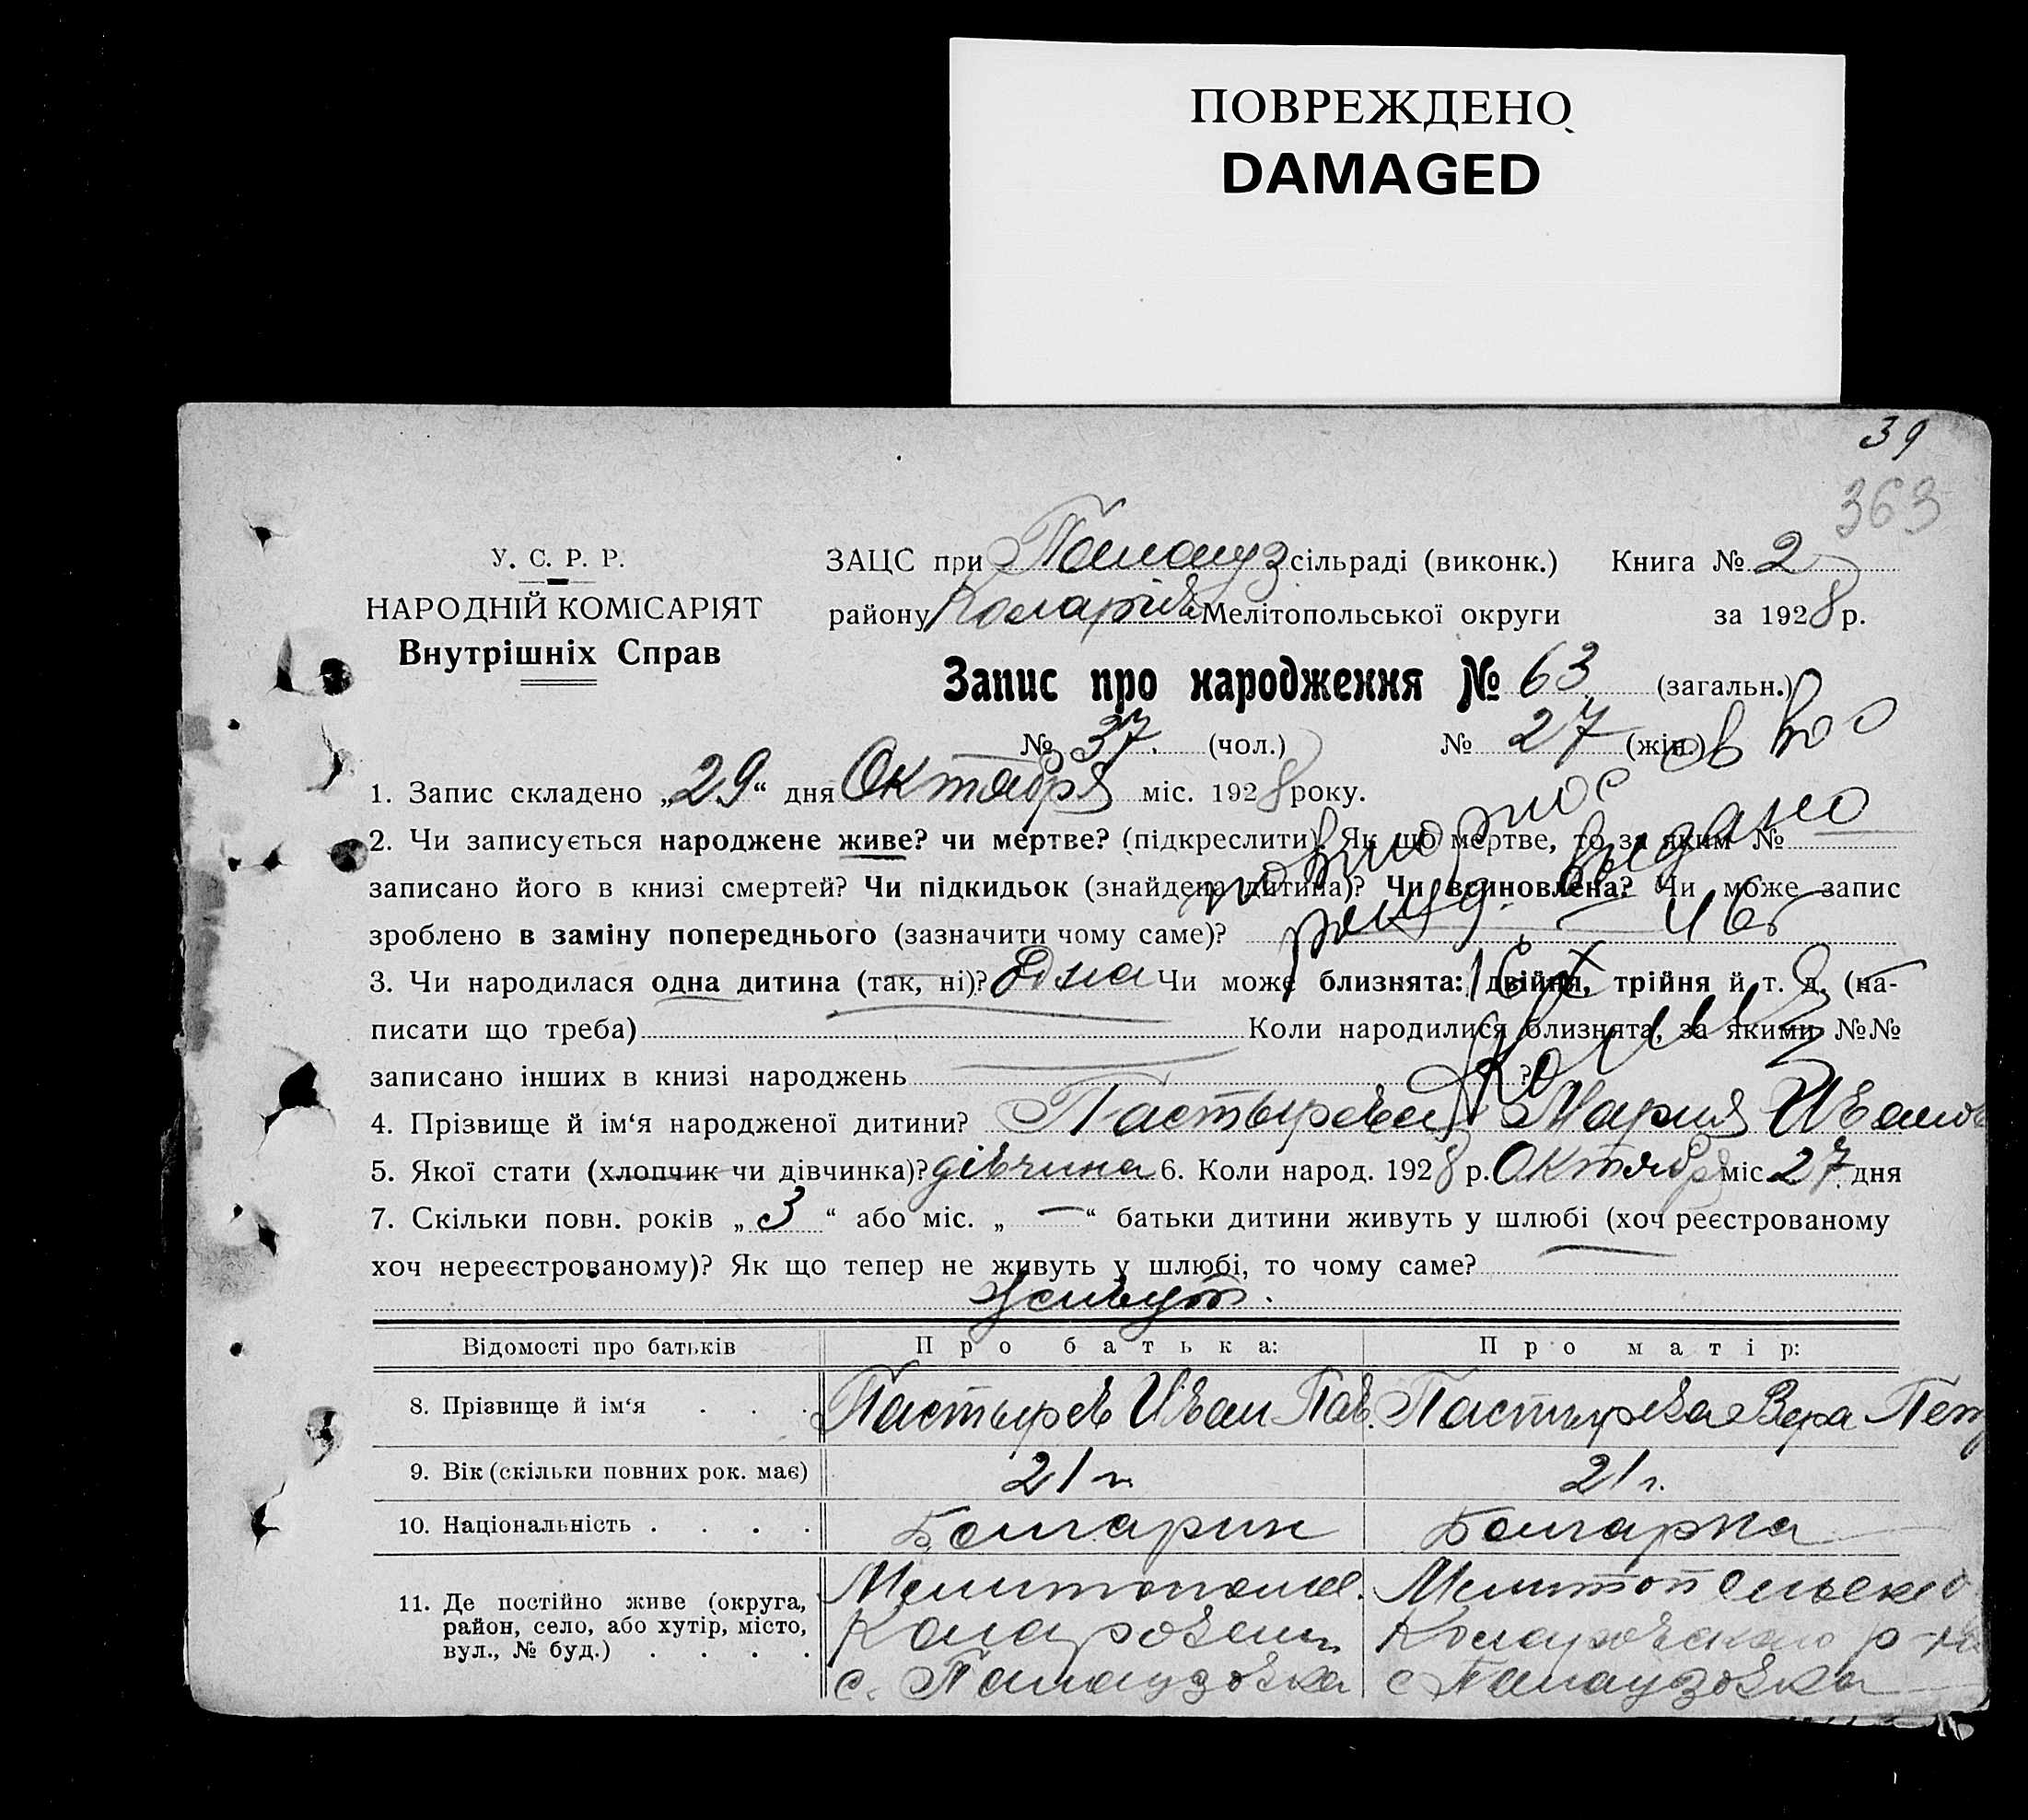 ПОВРЕЖДЕНО
DAMAGED
39
363
У. С. Р. Р.
НАРОДНІЙ КОМІСАРІЯТ
Внутрішніх Справ
ЗАЦС при Палауз сільраді (виконк.) Книга № 2
району Коларівс Мелітопольської округи за 1928 р.
Запис про народження № 63 (загальн.)
№ 37. (чол.) № 27 (жін.)
1. Запис складено „29“ дня Октября міс. 1928 року.
2. Чи записується народжене живе? чи мертве? (підкреслити). Як що мертве, то за яким №
записано його в книзі смертей? Чи підкидьок (знайдена дитина)? Чи всиновлена? Чи може запис
зроблено в заміну попереднього (зазначити чому саме)?
3. Чи народилася одна дитина (так, ні)? Одна Чи може близнята: двійня, трійня й т. д. (на-
писати що треба) Коли народилися близнята, за якими №№
записано інших в книзі народжень ?
повторное св во
выдано
4. Прізвище й ім‘я народженої дитини? Пастырева Мария Иванов
5. Якої стати (хлопчик чи дівчинка)? дівчина 6. Коли народ. 1928 р. Октября міс 27 дня
7. Скільки повн. років „3“ або міс. „—“ батьки дитини живуть у шлюбі (хоч реєстрованому
хоч нереєстрованому)? Як що тепер не живуть у шлюбі, то чому саме?
живут.
Відомості про батьків Про батька: Про матір:
8. Прізвище й ім‘я . . . Пастырев Иван Пав. Пастырева Вера Петр
9. Вік (скільки повних рок. має) 21 г. 21 г.
10. Національність . . . . Болгарин Болгарка
11. Де постійно живе (округа, район, село, або хутір, місто, вул., № буд.) . . . .
Мелитопол. Мелитопольско
Коларовск Коларовского р-на
с. Палаузовка с Палаузовка